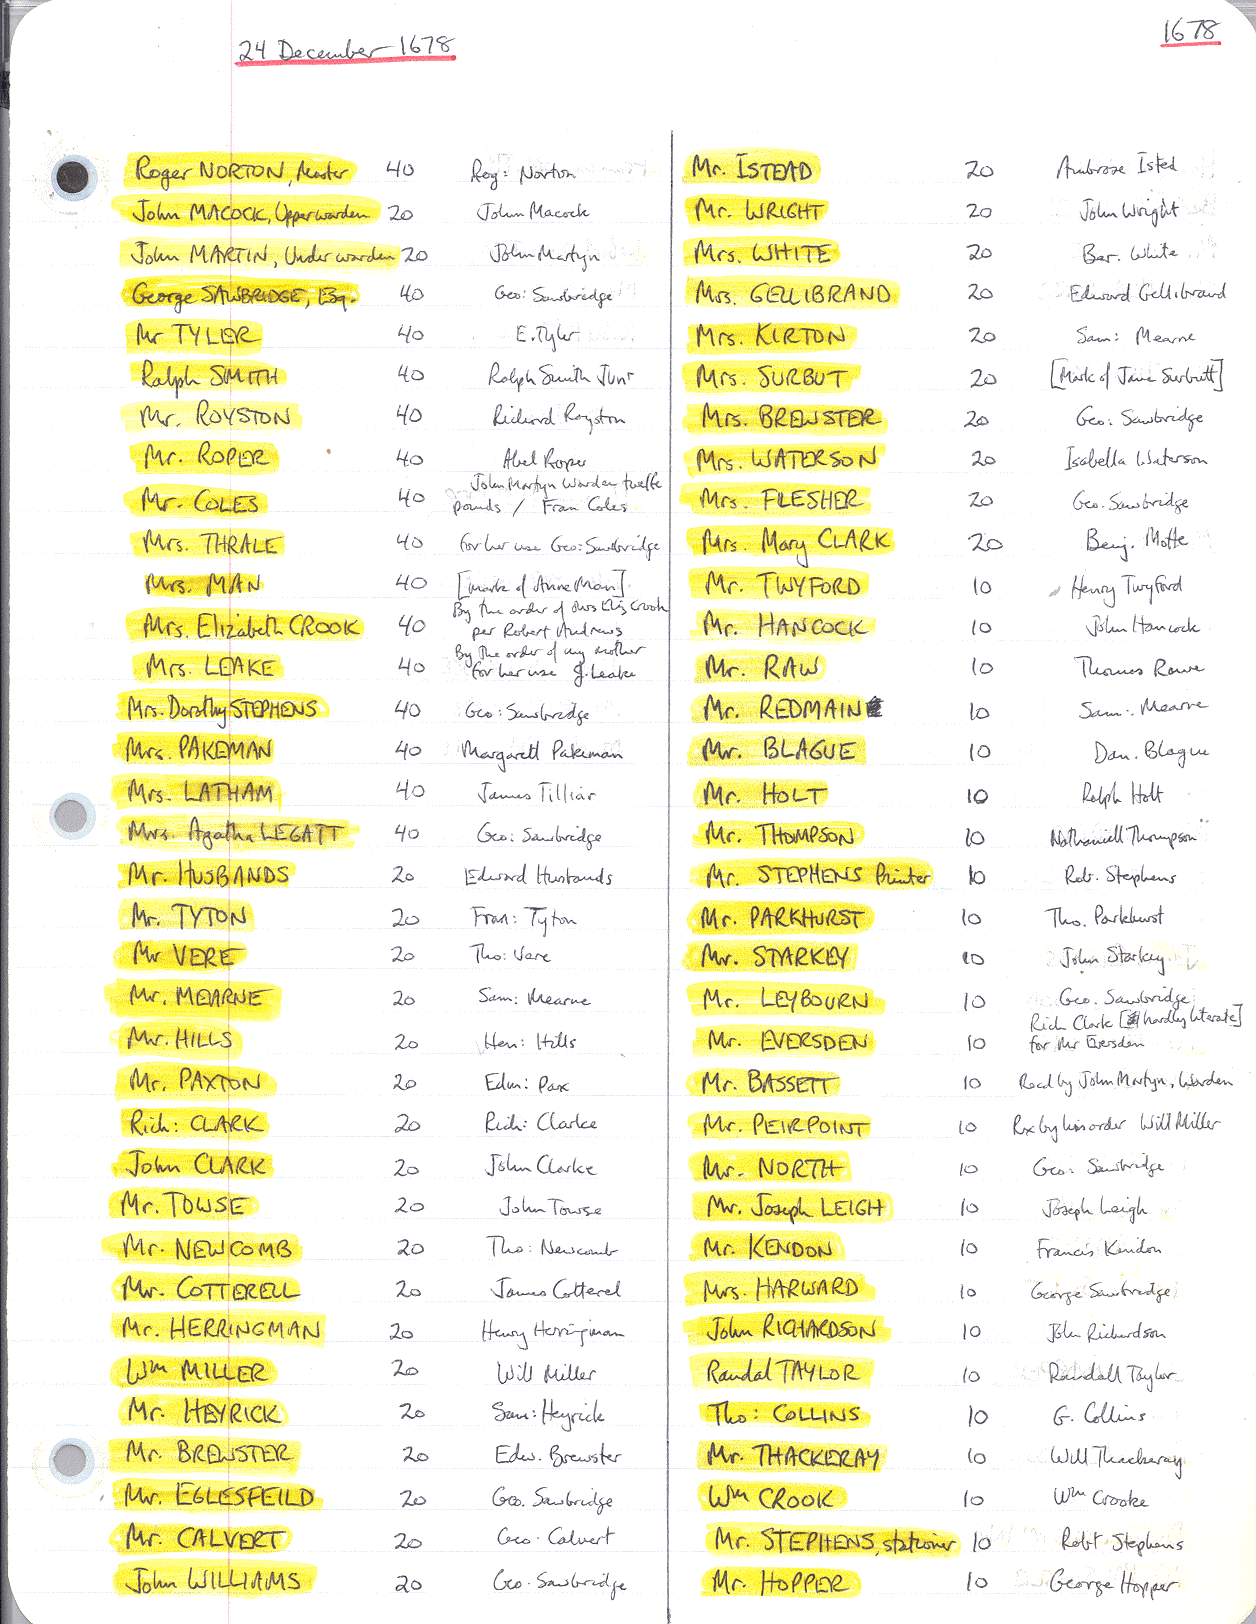 1678
24 December 1678
Roger NORTON, Master 40 Rog: Norton
John MACOCK, Upper warden 20 John Macock
John MARTIN, Under warden 20 John Martyn
George SAWBRIDGE, Esq. 40 Geo: Sawbridge
Mr TYLER 40 E. Tyler
Ralph SMITH 40 Ralph Smith Junr
Mr. ROYSTON 40 Richard Royston
Mr. ROPER 40 Abel Roper
Mr. COLES 40 John Martyn Warden twelfe
pounds / Fran Coles
Mrs. THRALE 40 for her use Geo: Sawbridge
Mrs. MAN 40 [Mark of Anne Man]
Mrs. Elizabeth CROOK 40 By the order of Mrs Elis Crook
per Robert Andrews
Mrs. LEAKE 40 By the order of my mother
for her use J. Leake
Mrs. Dorothy STEPHENS 40 Geo: Sawbridge
Mrs. PAKEMAN 40 Margarett Pakeman
Mrs. LATHAM 40 James Tilliar
Mrs. Agatha LEGATT 40 Geo: Sawbridge
Mr. HUSBANDS 20 Edward Husbands
Mr. TYTON 20 Fran: Tyton
Mr VERE 20 Tho: Vere
Mr. MEARNE 20 Sam: Mearne
Mr. HILLS 20 Hen: Hills
Mr. PAXTON 20 Edm: Pax
Rich: CLARK 20 Rich: Clarke
John CLARK 20 John Clarke
Mr. TOWSE 20 John Towse
Mr. NEWCOMB 20 Tho: Newcomb
Mr. COTTERELL 20 James Cotterel
Mr. HERRINGMAN 20 Henry Herringman
Wm MILLER 20 Will Miller
Mr. HEYRICK 20 Sam: Heyrick
Mr. BREWSTER 20 Edw. Brewster
Mr. EGLESFEILD 20 Geo. Sawbridge
Mr. CALVERT 20 Geo. Calvert
John WILLIAMS 20 Geo. Sawbridge
Mr. ISTEAD 20 Ambrose Isted
Mr. WRIGHT 20 John Wright
Mrs. WHITE 20 Bar. White
Mrs. GELLIBRAND 20 Edward Gellibrand
Mrs. KIRTON 20 Sam: Mearne
Mrs. SURBUT 20 [Mark of Jane Surbutt]
Mrs. BREWSTER 20 Geo: Sawbridge
Mrs. WATERSON 20 Isabella Waterson
Mrs. FLESHER 20 Geo. Sawbridge
Mrs. Mary CLARK 20 Benj. Motte
Mr. TWYFORD 10 Henry Twyford
Mr. HANCOCK 10 John Hancock
Mr. RAW 10 Thomas Rawe
Mr. REDMAIN 10 Sam: Mearne
Mr. BLAGUE 10 Dan. Blague
Mr. HOLT 10 Ralph Holt
Mr. THOMPSON 10 Nathaniell Thompson
Mr. STEPHENS Printer 10 Rob. Stephens
Mr. PARKHURST 10 Tho. Parkhurst
Mr. STARKEY 10 John Starkey
Mr. LEYBOURN 10 Geo. Sawbridge
Mr. EVERSDEN 10 Rich Clark [hardly literate]
for Mr Eversden
Mr. BASSETT 10 Recd by John Martyn, Warden
Mr. PEIRPOINT 10 Rx by him order Will Miller
Mr. NORTH 10 Geo: Sawbridge
Mr. Joseph LEIGH 10 Joseph Leigh
Mr. KENDON 10 Francis Kendon
Mrs. HARWARD 10 George Sawbridge
John RICHARDSON 10 John Richardson
Randal TAYLOR 10 Randall Taylor
Tho: COLLINS 10 G. Collins
Mr. THACKERAY 10 Will Thackeray
Wm CROOK 10 Wm Crooke
Mr. STEPHENS, stationer 10 Robt Stephens
Mr. HOPPER 10 George Hopper